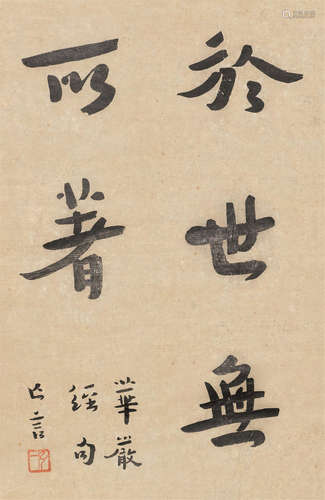 於世無
所著
華嚴
經句
亡言